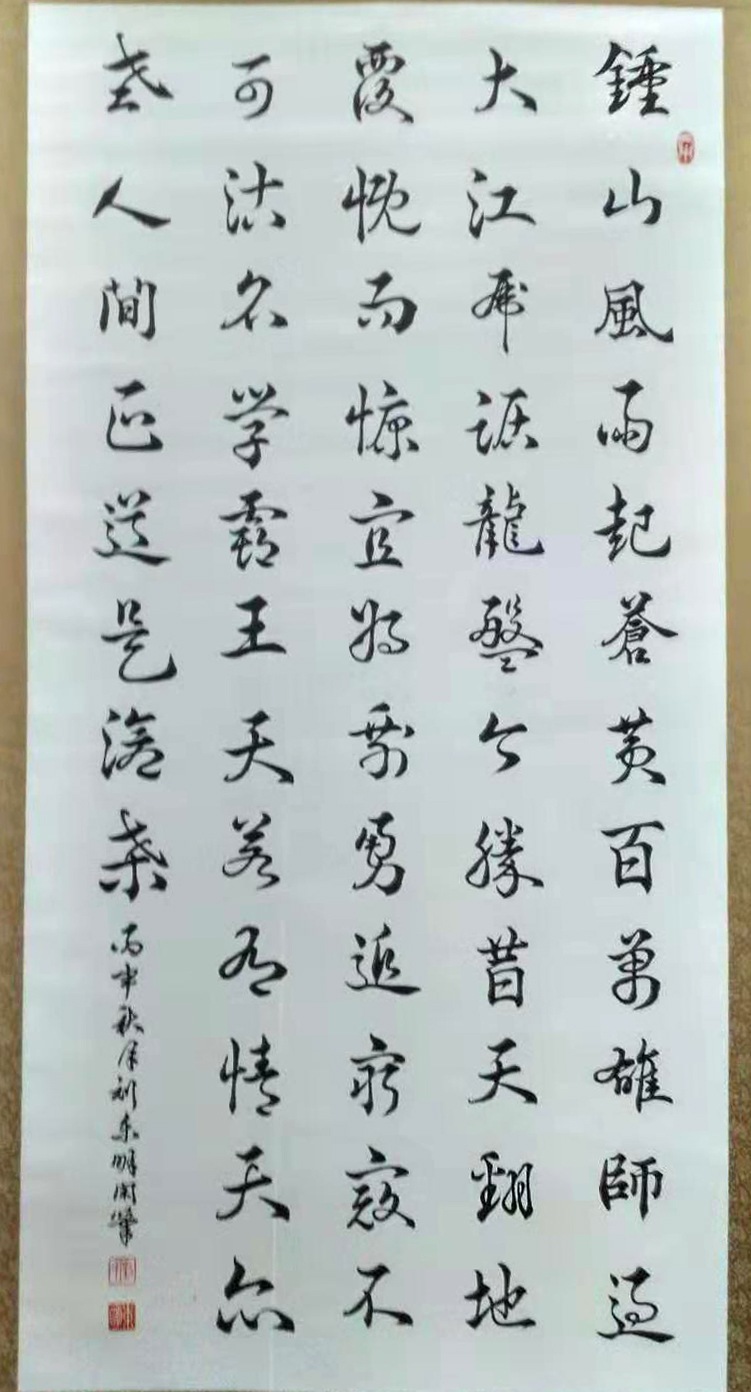 鍾山風雨起蒼黄百萬雄師過
大江虎踞龍盤今勝昔天翻地
覆慨而慷宜將剩勇追窮寇不
可沽名学霸王天若有情天亦
老人間正道是滄桑
丙申秋月